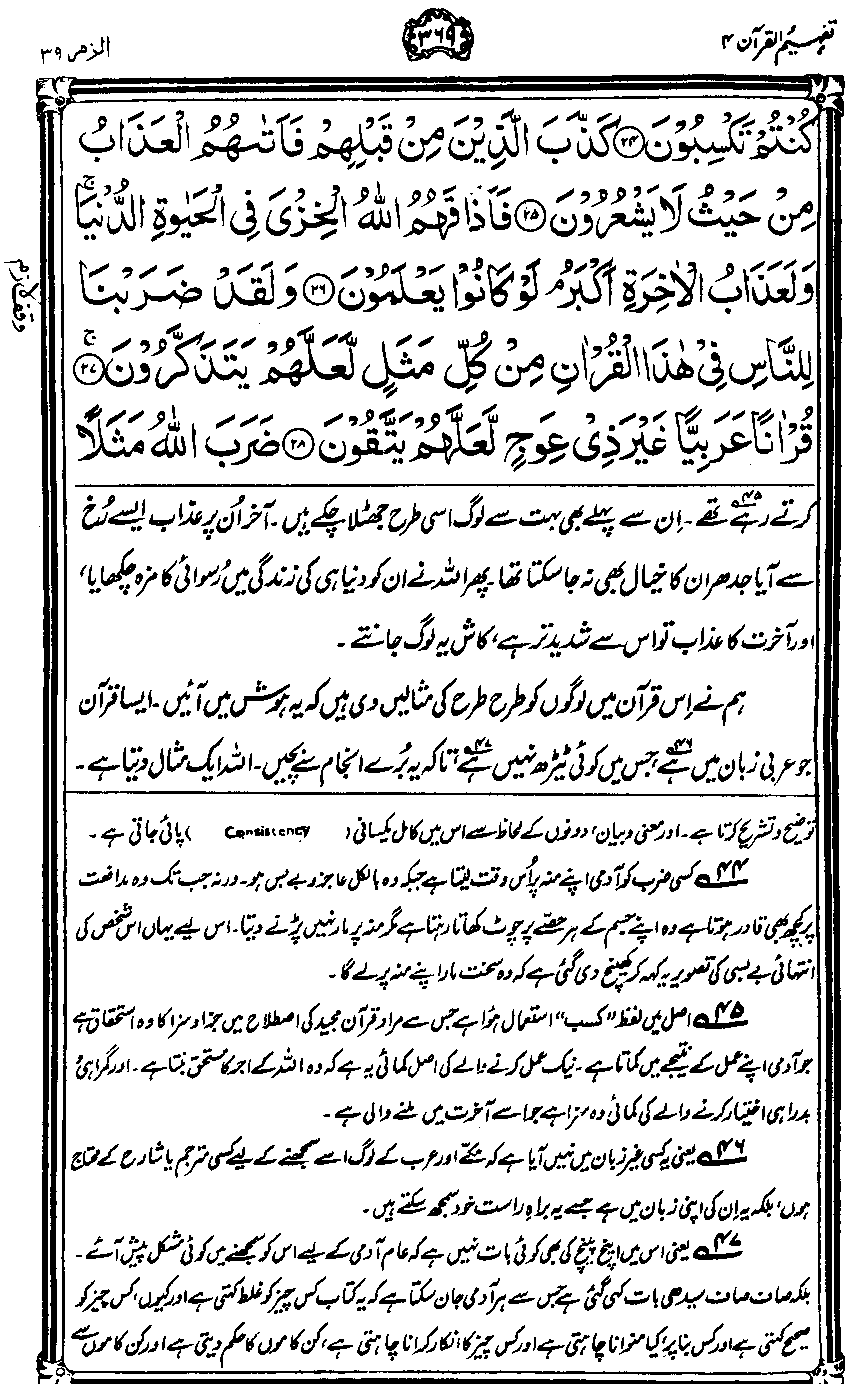 تفہیم القرآن ۴
۳۶۹
الزمر ۳۹
كُنْتُمْ تَكْسِبُوْنَ ﴿۲۴﴾ كَذَّبَ الَّذِيْنَ مِنْ قَبْلِهِمْ فَاَتٰىهُمُ الْعَذَابُ
مِنْ حَيْثُ لَا يَشْعُرُوْنَ ﴿۲۵﴾ فَاَذَاقَهُمُ اللّٰهُ الْخِزْىَ فِى الْحَيٰوةِ الدُّنْيَا ۚ
وَلَعَذَابُ الْاٰخِرَةِ اَكْبَرُ ۘ لَوْ كَانُوْا يَعْلَمُوْنَ ﴿۲۶﴾ وَلَقَدْ ضَرَبْنَا
وقف لازم
لِلنَّاسِ فِىْ هٰذَا الْقُرْاٰنِ مِنْ كُلِّ مَثَلٍ لَّعَلَّهُمْ يَتَذَكَّرُوْنَ ﴿۲۷﴾ ۚ
قُرْاٰنًا عَرَبِيًّا غَيْرَ ذِىْ عِوَجٍ لَّعَلَّهُمْ يَتَّقُوْنَ ﴿۲۸﴾ ضَرَبَ اللّٰهُ مَثَلًا
کرتے رہے ۴۵ تھے۔ اِن سے پہلے بھی بہت سے لوگ اسی طرح جھٹلا چکے ہیں۔ آخر اُن پر عذاب ایسے رُخ
سے آیا جدھر ان کا خیال بھی نہ جا سکتا تھا۔ پھر اللہ نے ان کو دنیا ہی کی زندگی میں رُسوائی کا مزہ چکھایا،
اور آخرت کا عذاب تو اس سے شدید تر ہے، کاش یہ لوگ جانتے۔
ہم نے اِس قرآن میں لوگوں کو طرح طرح کی مثالیں دی ہیں کہ یہ ہوش میں آئیں۔ ایسا قرآن
جو عربی زبان میں ہے ۴۶، جس میں کوئی ٹیڑھ نہیں ہے ۴۷، تاکہ یہ بُرے انجام سے بچیں۔ اللہ ایک مثال دیتا ہے۔
توضیح و تشریح کرتا ہے۔ اور معنی و بیان، دونوں کے لحاظ سے اس میں کامل یکسانی (Consistency) پائی جاتی ہے۔
۴۴ کسی ضرب کو آدمی اپنے منہ پر اُس وقت لیتا ہے جبکہ وہ بالکل عاجز و بے بس ہو۔ ورنہ جب تک وہ مدافعت
پر کچھ بھی قادر ہوتا ہے وہ اپنے جسم کے ہر حصّے پر چوٹ کھاتا رہتا ہے مگر منہ پر مار نہیں پڑنے دیتا۔ اس لیے یہاں اس شخص کی
انتہائی بے بسی کی تصویر یہ کہہ کر کھینچ دی گئی ہے کہ وہ سخت مار اپنے منہ پر لے گا۔
۴۵ اصل میں لفظ "کسب" استعمال ہوا ہے جس سے مراد قرآن مجید کی اصطلاح میں جزا و سزا کا وہ استحقاق ہے
جو آدمی اپنے عمل کے نتیجے میں کماتا ہے۔ نیک عمل کرنے والے کی اصل کمائی یہ ہے کہ وہ اللہ کے اجر کا مستحق بنتا ہے۔ اور گمراہی و
بد راہی اختیار کرنے والے کی کمائی وہ سزا ہے جو اسے آخرت میں ملنے والی ہے۔
۴۶ یعنی یہ کسی غیر زبان میں نہیں آیا ہے کہ مکّے اور عرب کے لوگ اسے سمجھنے کے لیے کسی مترجم یا شارح کے محتاج
ہوں، بلکہ یہ اِن کی اپنی زبان میں ہے جسے یہ براہِ راست خود سمجھ سکتے ہیں۔
۴۷ یعنی اس میں اینچ پینچ کی بھی کوئی بات نہیں ہے کہ عام آدمی کے لیے اس کو سمجھنے میں کوئی مشکل پیش آئے۔
بلکہ صاف صاف سیدھی بات کہی گئی ہے جس سے ہر آدمی جان سکتا ہے کہ یہ کتاب کس چیز کو غلط کہتی ہے اور کیوں، کس چیز کو
صحیح کہتی ہے اور کس بنا پر، کیا منوانا چاہتی ہے اور کس چیز کا انکار کرانا چاہتی ہے، کن کاموں کا حکم دیتی ہے اور کن کاموں سے